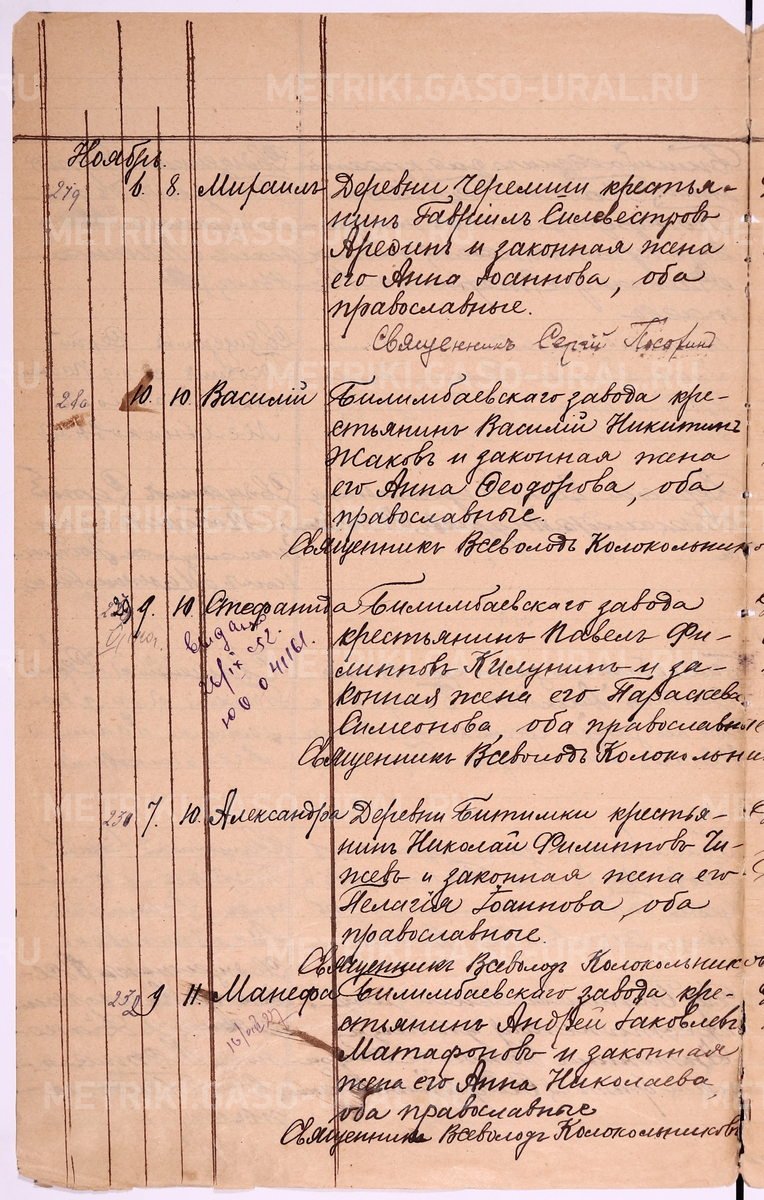 METRIKI.GASO-URAL.RU
Ноябрь.
279 6. 8. Михаилъ Деревни Черемши крестья-
нинъ Гавріилъ Силвестровъ
Арефинъ и законная жена
его Анна Іоаннова, оба
православные.
Священникъ Сергій
280 10. 10 Василій Билимбаевскаго завода кре-
стьянинъ Василій Никитинъ
Жаковъ и законная жена
его Анна Ѳеодорова, оба
православные.
Священникъ Всеволодъ Колокольнико
9. 10 Стефанида Билимбаевскаго завода
крестьянинъ Павелъ Фи-
липповъ Килунинъ и за-
конная жена его Параскева
Симеонова, оба православные
Священникъ Всеволодъ Колокольни
выдано
52.
ЮО 041161.
230 7. 10. Александра Деревни Битимки крестья-
нинъ Николай Филипповъ Чи-
жевъ и законная жена его
Пелагія Іоаннова, оба
православные.
Священникъ Всеволодъ Колокольников
232 9 11. Манефа Билимбаевскаго завода кре-
стьянинъ Андрей Іаковлевъ
Матафоновъ и законная
жена его Анна Николаева,
оба православные
Священникъ Всеволодъ Колокольниковъ